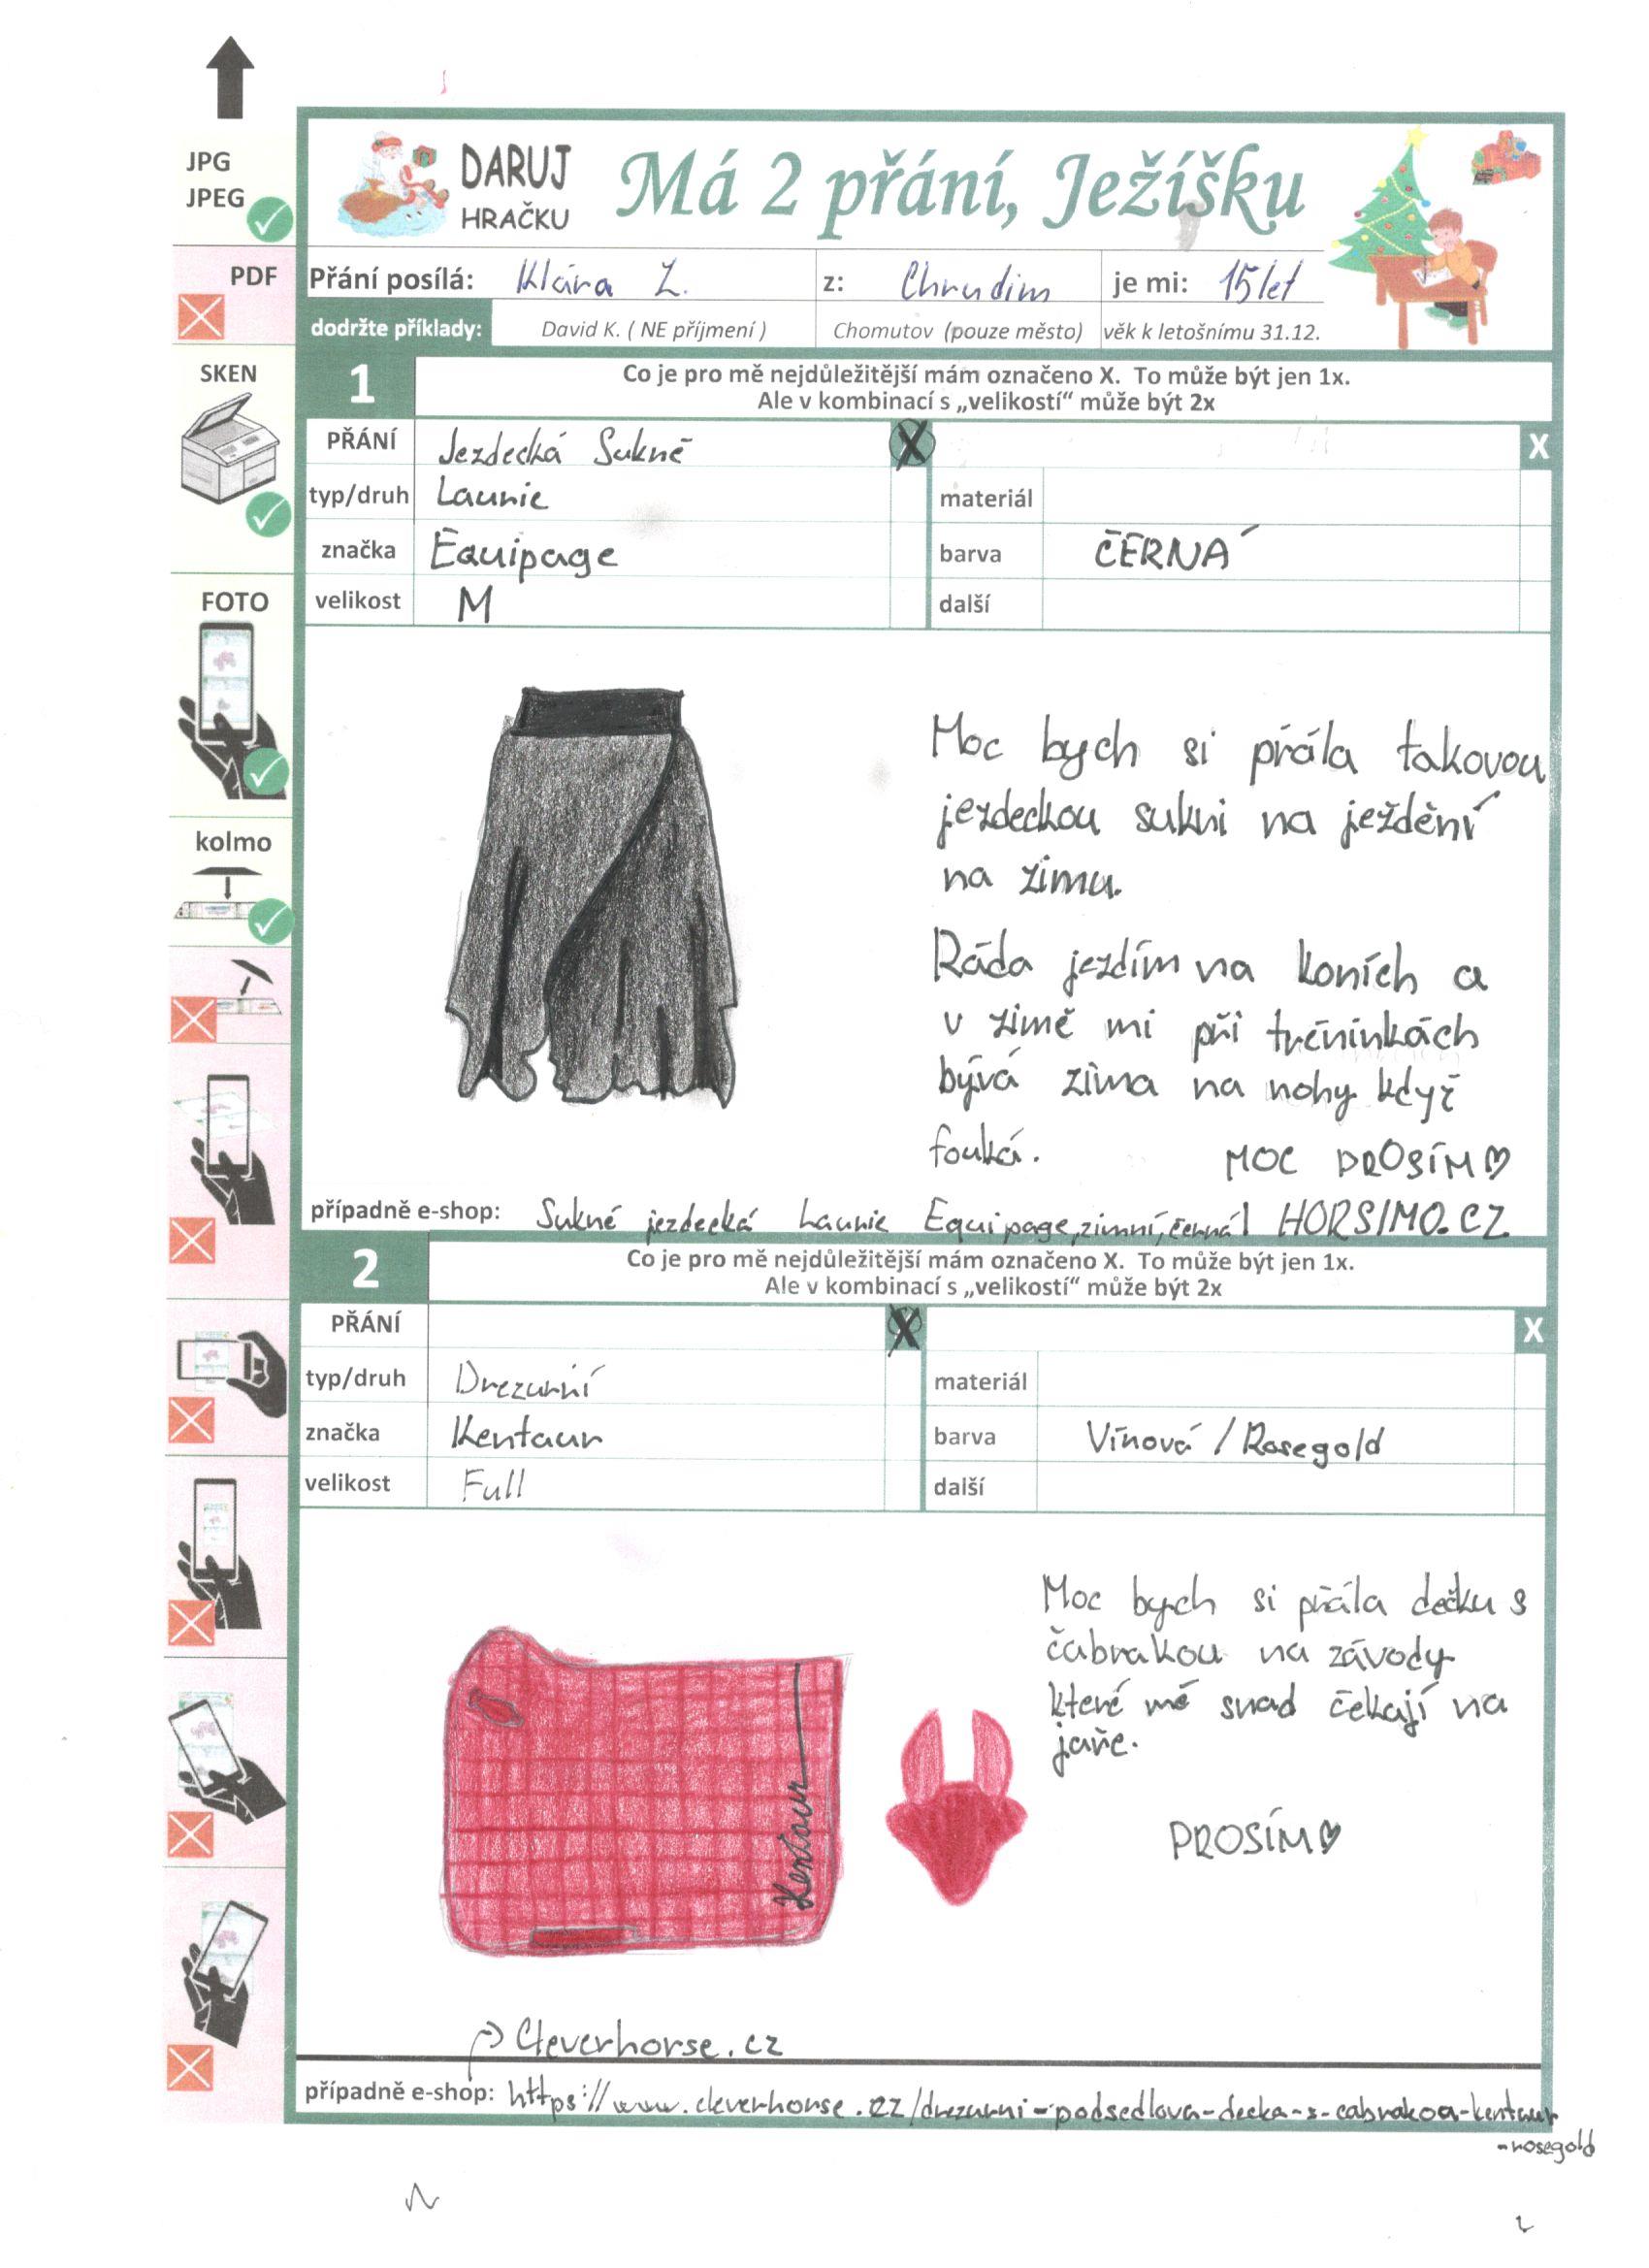 JPG
JPEG
PDF
SKEN
FOTO
kolmo
DARUJ
HRAČKU
Má 2 přání, Ježíšku
Přání posílá: Klára Z. z: Chrudim je mi: 15 let
dodržte příklady: David K. ( NE příjmení ) Chomutov (pouze město) věk k letošnímu 31.12.
1 Co je pro mě nejdůležitější mám označeno X. To může být jen 1x.
Ale v kombinací s „velikostí“ může být 2x
PŘÁNÍ Jezdecká Sukně X X
typ/druh Launie materiál
značka Equipage barva ČERNÁ
velikost M další
Moc bych si přála takovou
jezdeckou sukni na ježdění
na zimu.
Ráda jezdím na koních a
v zimě mi při tréninkách
bývá zima na nohy když
fouká. MOC PROSÍM♡
případně e-shop: Sukně jezdecká Launie Equipage,zimní,černá| HORSIMO.CZ
2 Co je pro mě nejdůležitější mám označeno X. To může být jen 1x.
Ale v kombinací s „velikostí“ může být 2x
PŘÁNÍ X X
typ/druh Drezurní materiál
značka Kentaur barva Vínová / Rosegold
velikost Full další
Moc bych si přála dečku s
čabrakou na závody
které mě snad čekají na
jaře.
Kentaur
PROSÍM♡
Cleverhorse.cz
případně e-shop: https://www.cleverhorse.cz/drezurni-podsedlova-decka-s-cabrakoa-kentaur
-rosegold